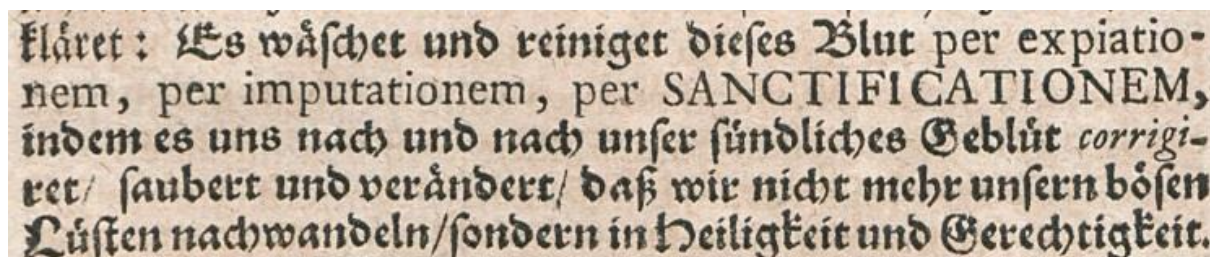 kläret: Es wäschet und reiniget dieses Blut per expiatio-
nem, per imputationem, per SANCTIFICATIONEM,
indem es uns nach und nach unser sündliches Geblüt corrigi-
ret/ saubert und verändert/ daß wir nicht mehr unsern bösen
Lüsten nachwandeln/sondern in Heiligkeit und Gerechtigkeit.